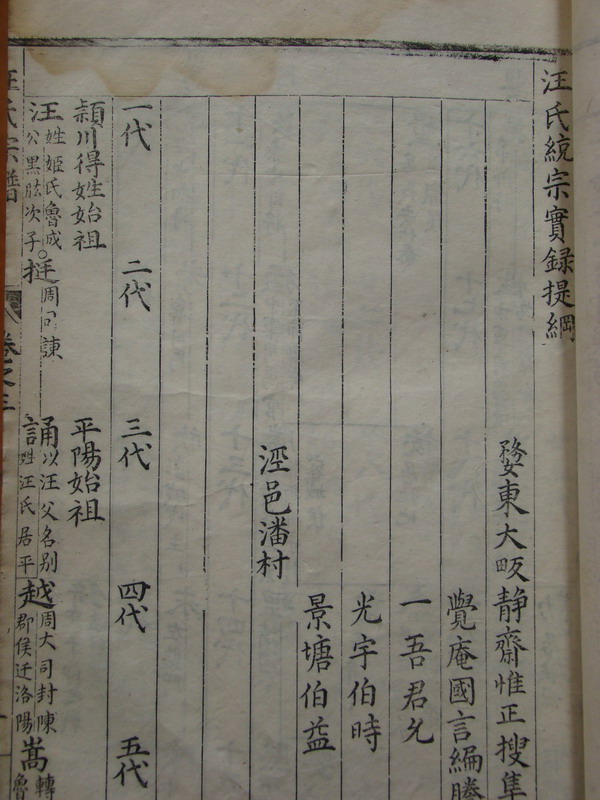 汪氏統宗實録提綱
婺東大畈靜齋惟正搜集
覺庵國言編勝
一吾君允
光宇伯時
景塘伯益
涇邑潘村
一代
二代
三代
四代
五代
潁川得姓始祖
平陽始祖
汪姓姬氏魯成
公黑肱次子
挺周司諫
誦以汪父名别
姓汪氏居平
越周大司封陳
郡侯迁洛陽
嵩轉
魯
汪氏宗譜
卷之三